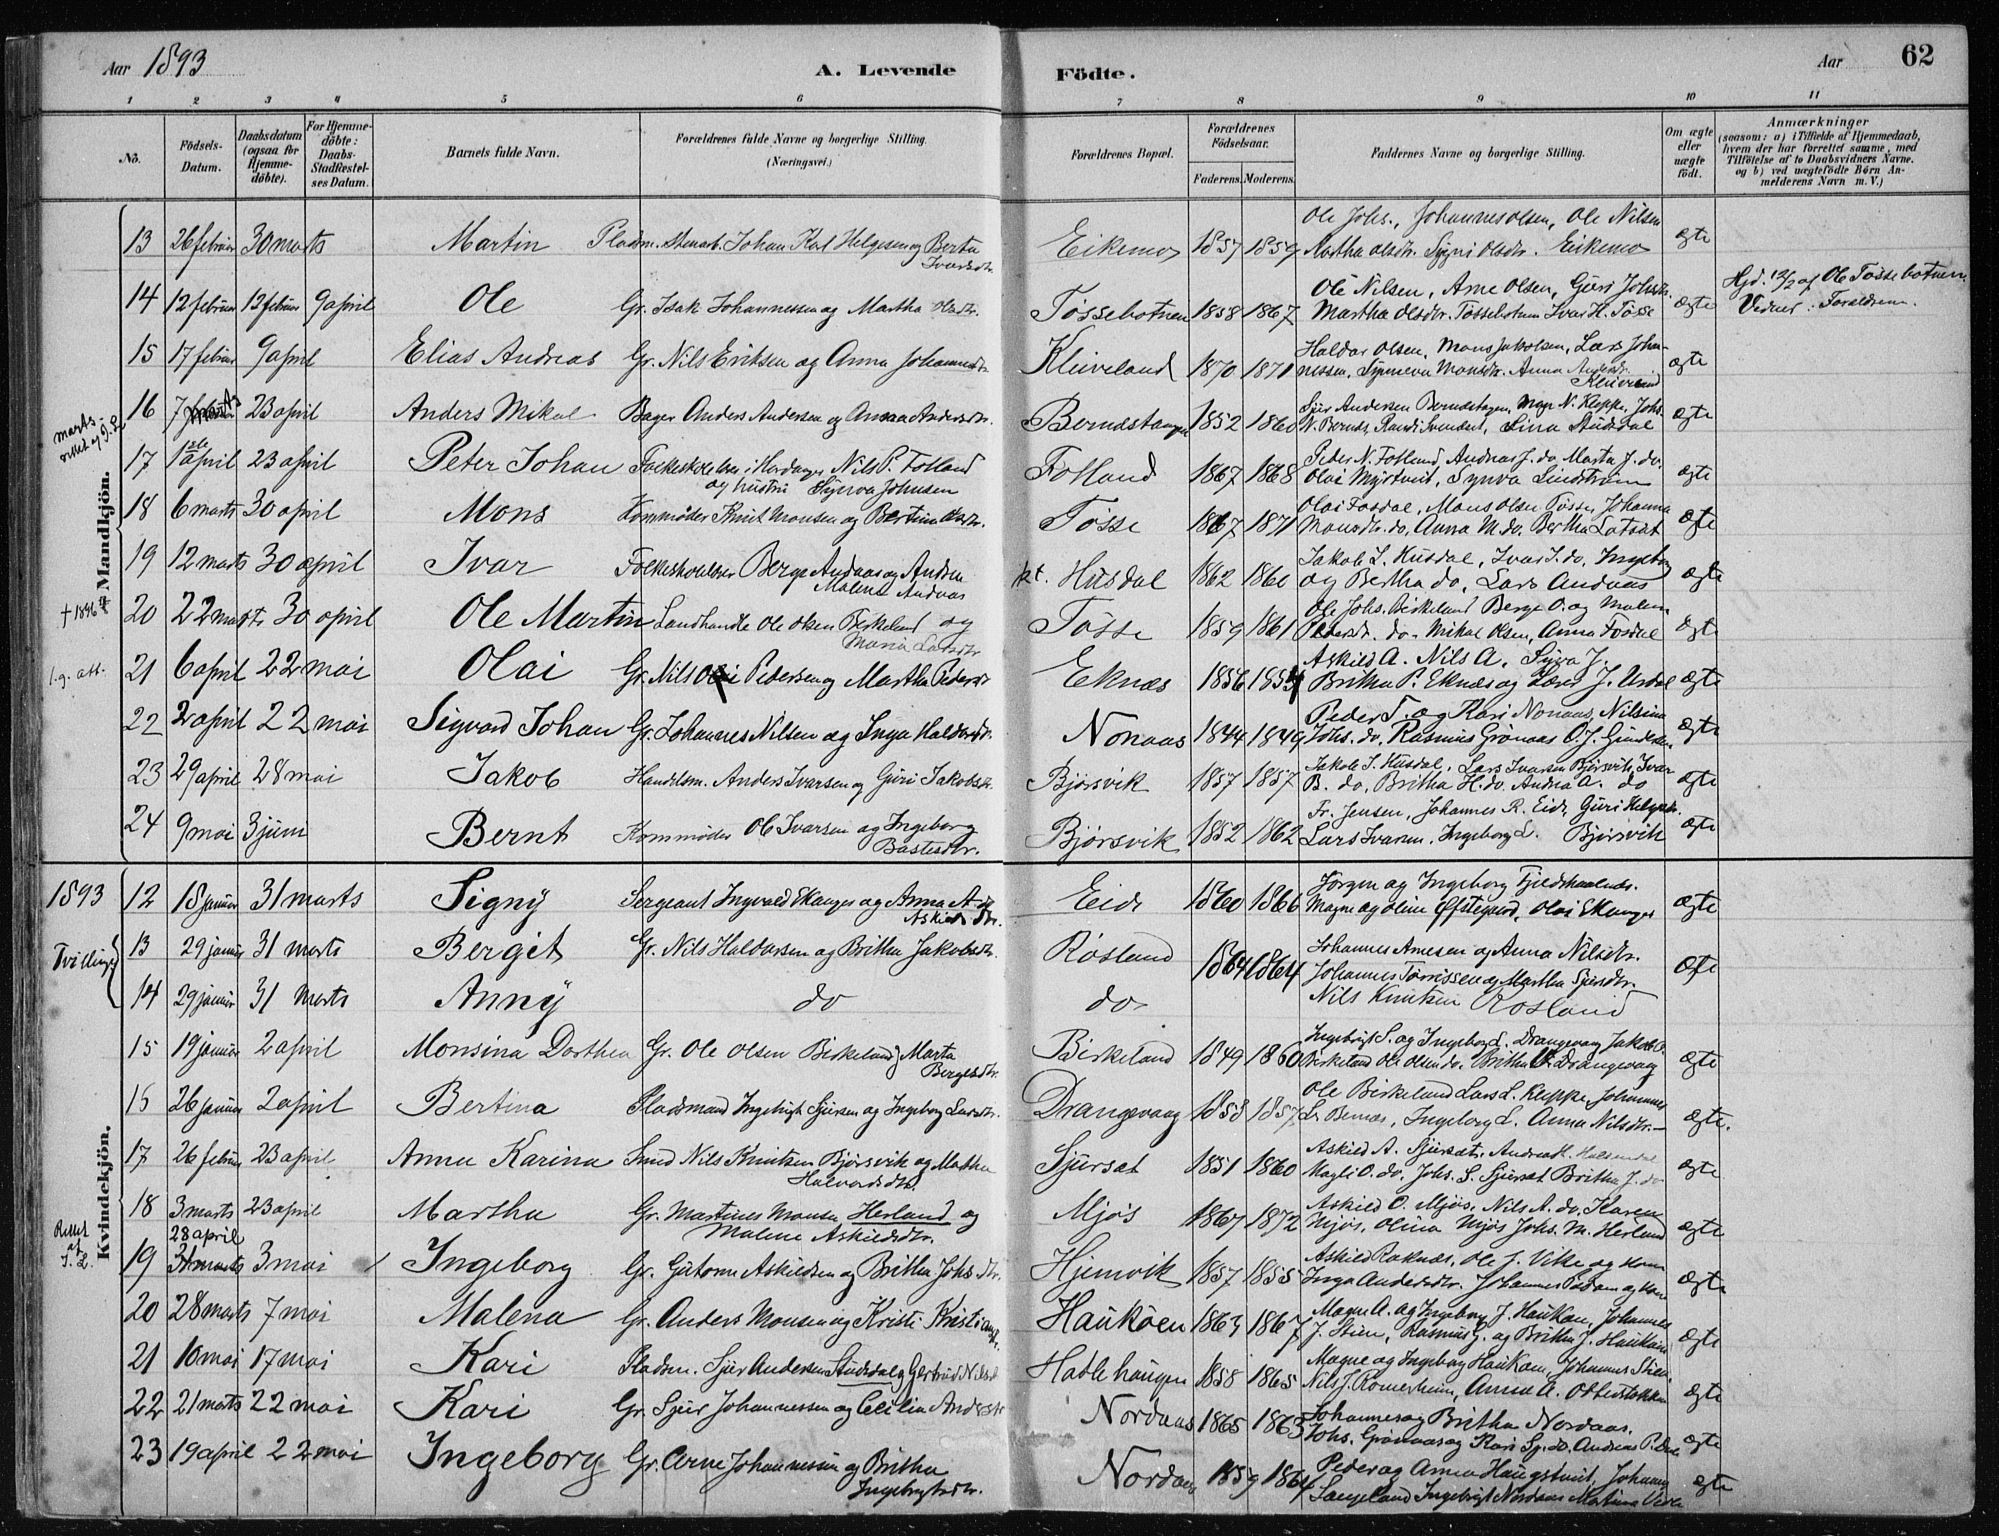 Aar 1893
A. Levende
Födte.
Aar
62
1 2 3 4 5 6 7 8 9 10 11
No.
Födsels-Datum.
Daabsdatum (ogsaa for Hjemme-döbte).
For Hjemme-döbte: Daabs-Stadfæstel-ses Datum.
Barnets fulde Navn.
Forældrenes fulde Navne og borgerlige Stilling. (Næringsvei.)
Forældrenes Bopæl.
Forældrenes Födselsaar.
Faderens. Moderens.
Faddernes Navne og borgerlige Stilling.
Om ægte eller uægte födt.
Anmærkninger
(saasom: a) i Tilfælde af Hjemmedaab, hvem der har forrettet samme, med Tilföielse af to Daabsvidners Navne. og b) ved uægtefödte Börn An-melderens Navn m. V.)
Mandkjön.
13 26 februar 30 marts Martin Pladsm. Stenarb. Johan Karl Helgesen og Berta Ivarsdtr. Eikemo 1857 1859 Ole Johs., Johannes Olsen, Ole Nilsen
Martha Olsdtr. Sygni Olsdtr. Eikemo ægte
14 12 februar 12 februar 9 april Ole Gr. Isak Johannessen og Martha Olsdtr. Tøssebotnen 1858 1867 Ole Nilsen, Arne Olsen, Guri Johsdtr.
Martha Olsdtr. Tøssebotnen Ivar H. Tøsse ægte Hjd. 12/2 af Ole Tøssebotnen
Vidner: Forældrene.
15 17 februar 9 april Elias Andreas Gr. Nils Eriksen og Anna Johannesdtr. Kleiveland 1870 1871 Haldor Olsen, Mons Jakobsen, Lars Johan-
nessen, Synneva Monsdtr. Anna Andersdtr. Kleiveland ægte
marts rettet af
16 7 marts 23 april Anders Mikal Bager Anders Andersen og Anna Andersdtr. Berndstangen 1852 1860 Sjur Andersen Berndstangen, Magn N. Kleppe, Johs.
N. Bernds, Stina Studsdal ægte
17 1ste april 23 april Peter Johan Folkeskolelærer i Hordanger Nils P. Fotland
og hustru Synva Johnsen Fotland 1867 1868 Peder N. Fotland, Andreas J. do Marta J. do.
Olai Myrtveit, Synva Lindstrøm ægte
18 6 marts 30 april Mons Kornmøder Knut Monsen og Bertine Olsdtr. Tøsse 1867 1871 Olai Fosdal, Mons Olsen Tøsse, Johanna
Monsdtr. do, Anna M. do. Bertha Lutsæt ægte
19 12 marts 30 april Ivar Folkeskolelærer Berge Andaas og Andrea
Malene Andaas Husdal 1862 1860 Jakob I. Husdal, Ivar I. do, Ingeborg
og Bertha do, Lars Andaas ægte
† 1896
20 22 marts 30 april Ole Martin Landhandler Ole Olsen Birkeland og
Maria Larsdtr. Tøsse 1859 1861 Ole Johs. Birkeland Berge O. og Malene
Pedersdtr. do. Mikal Olsen, Anna Fosdal ægte
21 6 april 22 mai Olai Gr. Nils Pedersen og Martha Pedersdtr. Eknæs 1856 1854 Askild A. Nils A. Synva J.
Britha P. Eknæs og Lars J. Urdal ægte
22 2 april 22 mai Sigvard Johan Gr. Johannes Nilsen og Inga Haldorsdtr. Nonaas 1844 1849 Peder T. og Kari Nonaas, Nilsine
Johs. do. Rasmus Grønaas O. J. ægte
23 29 april 28 mai Jakob Handelsm. Anders Ivarsen og Guri Jakobsdtr. Bjørsvik 1857 1857 Jakob I. Husdal, Lars Ivarsen Bjørsvik, Ivar
B. do. Britha H. do. Andrea A. do ægte
24 9 mai 3 juni Bernt Kornmøder Ole Ivarsen og Ingeborg
Bastesdtr. Bjørsvik 1852 1862 Fr. Jensen, Johannes R. Eide, Guri Helgesdtr.
Lars Ivarsen, Ingeborg L. Bjørsvik ægte
Kvindekjön.
1893
12 18 januar 31 marts Signy Sergeant Ingvald Ekanger og Anna A.
Askildsdtr. Eide 1860 1866 Jørgen og Ingeborg Fjeldskaalnes.
Magne og Oline Øfstegaard, Olai Ekanger ægte
Tvillinger
13 29 januar 31 marts Berget Gr. Nils Haldorsen og Britha Jakobsdtr. Røsland 1864 1864 Johannes Arnesen og Anna Nilsdtr.
Johannes Torrissen og Martha Sjursdtr.
Nils Knutsen Rosland ægte
14 29 januar 31 marts Anny do do
15 19 januar 2 april Monsina Dorthea Gr. Ole Olsen Birkeland, Marta
Bergesdtr. Birkeland 1849 1860 Ingebrigt S. og Ingeborg L. Drangevaag Jakob O.
Birkeland Ole Olsen do. Britha O. Drangevaag ægte
16 26 januar 2 april Bertina Pladsmand Ingebrigt Sjursen og Ingeborg Larsdtr. Drangevaag 1853 1857 Ole Birkeland Lars L. Kleppe, Johannes
L. Bernæs, Ingeborg L. Anna Nilsdtr. ægte.
17 26 februar 23 april Anna Karina Smed Nils Knutsen Bjørsvik og Martha
Halvorsdtr. Sjursæt 1851 1860 Askild A. Sjursæt, Andrea
Magli O. do, Johs. S. Sjursæt Britha J. do ægte
18 3 marts 23 april Martha Gr. Martines Monsen Herland og
Malene Askildsdtr. Mjøs 1867 1872 Askild O. Mjøs, Nils A. do, Karen
Mjøs, Olina Mjøs Johs. M. Herland ægte
Rettet af S. L.
28 april
19 31 marts 3 mai Ingeborg Gr. Gutorm Askildsen og Britha Johs.dtr. Hjemvik 1857 1855 Askild Raknæs, Ole J. Vike og
Inga Andersdtr. Johannes ægte
20 28 marts 7 mai Malena Gr. Anders Monsen og Kristi Haukøen 1863 1867 Magne A. og Ingeborg J. Haukøen, Johannes
J. Stien, Rasmus J. og Britha J. Haukøen ægte
21 10 mai 17 mai Kari Pladsm. Sjur Andersen Studsdal og Gertrud Nilsd. Hatlehaugen 1858 1865 Magne og Ingeborg Haukøen, Johannes
Nils J. Romerheim, Anna A. ægte
22 21 marts 22 mai Kari Gr. Sjur Johannessen og Cecilia Andersdtr. Nordaas 1865 1863 Johannes og Britha Nordaas.
Johs. Grønaas og Kari Sj. do. Andreas ægte
23 19 april 22 mai Ingeborg Gr. Arne Johannessen og Britha
Ingebrigtsdtr. Nordaas 1859 1864 Peder og Anna Haugstveit, Johannes
Langeland Ingebrigt Nordaas Martina ægte